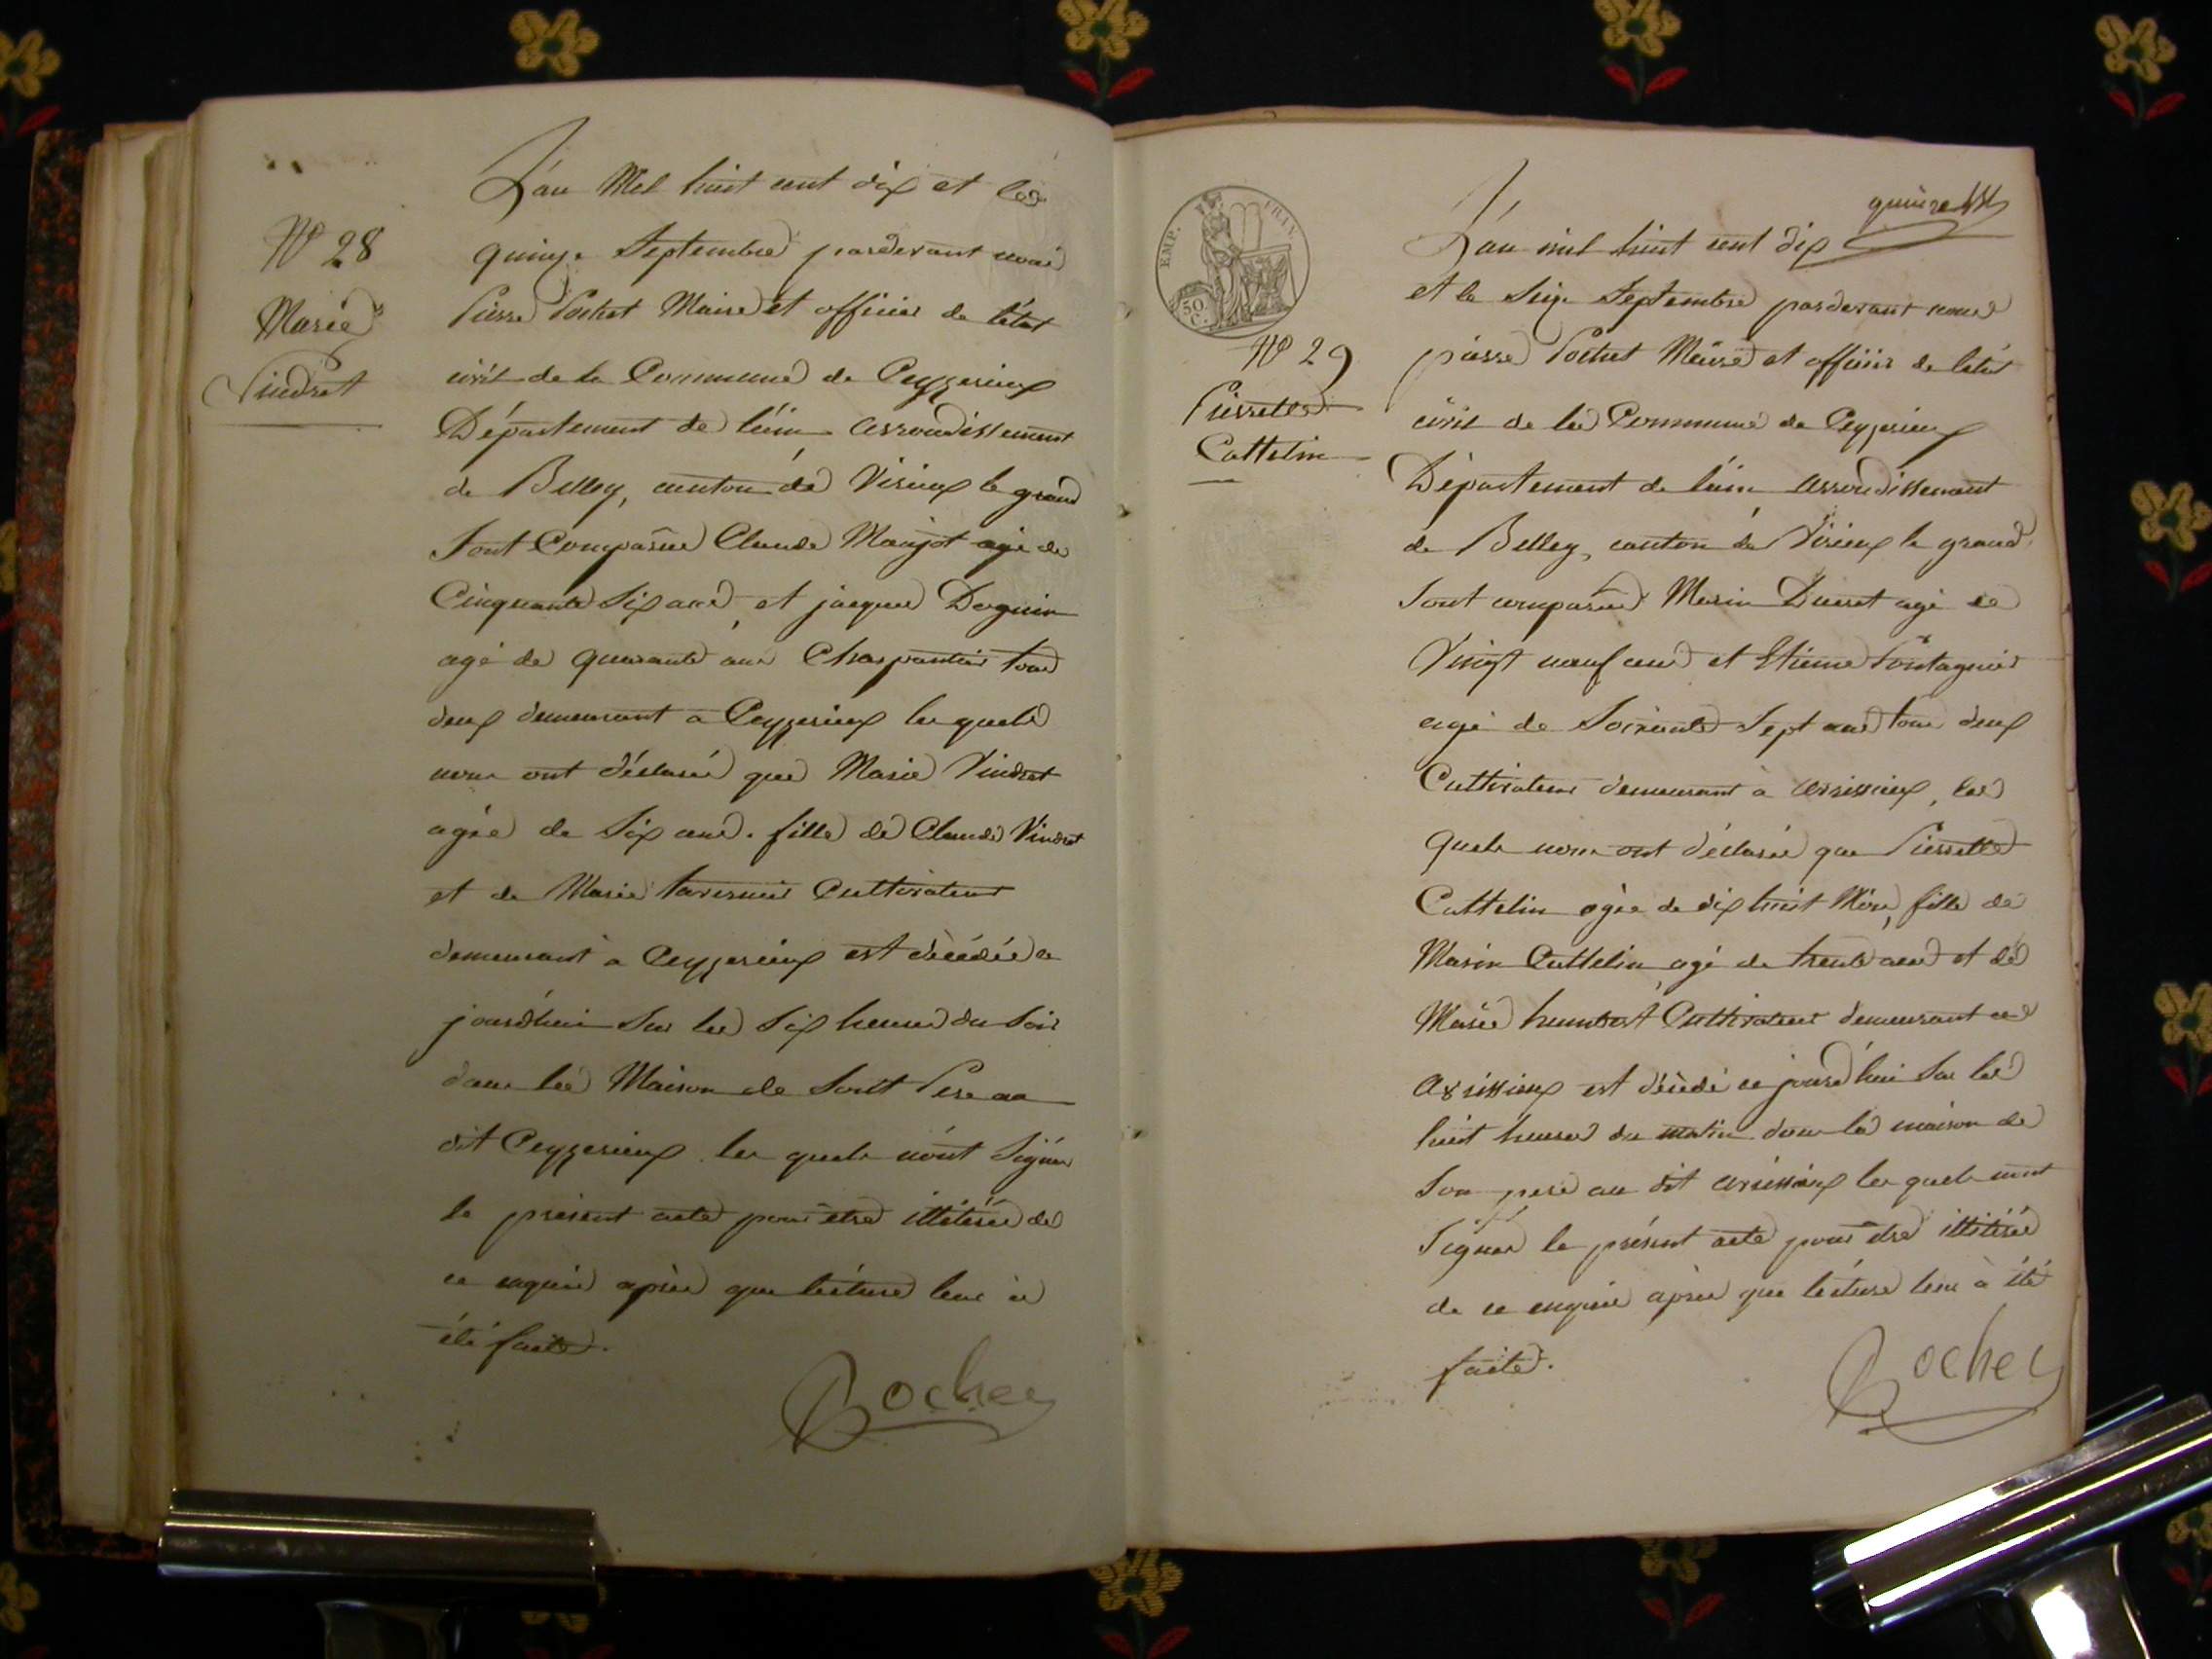 L'an Mil huit cent dix et le
quinze Septembre pardevant nous
N° 28
Pierre Pochet Maire et officier de l'état
Marie
civil de la Commune de Ceyzerieux
Vindret
Département de l'ain arrondissement
de Belley, canton de Virieux le grand
Sont Comparus Claude Manjot agé de
Cinquante Six ans, et jacques Doguin
agé de quarante ans Charpantier tous
deux demeurant a Ceyzerieux les quels
nous ont déclarés que Marie Vindret
agée de Six ans. fille de Claude Vindret
et de Marie tavernier Cultivateur
demeurant a Ceyzerieux est décédée ce
jourdhui Sur les Six heures du Soir
dans la Maison de Sont Pere au
dit Ceyzerieux les quels n'ont Signés
le présent acte pour être illitérés de
ce enquis après que lecture leur a
été faite.
Pochet
quinze
EMP. FRAN.
50 C.
L'an mil huit cent dix
et le Seize Septembre pardevant nous
N° 29
pierre Pochet Maire et officier de l'état
Pierrette
civil de la Commune de Ceyzerieux
Cattelin
Département de l'ain arrondissement
de Belley, canton de Virieux le grand
Sont comparus Marin Ducret agé de
Vingt neuf ans et Etienne Pontagnier
agé de Soixante Sept ans tous deux
Cultivateur demeurant à avrissieux, les
quels nous ont déclarés que Pierrette
Cattelin agée de dix huit Mois, fille de
Marin Cattelin agé de trente ans et de
Marie humbert Cultivateur demeurant a
avrissieux est décédé ce jourd'hui Sur les
huit heures du matin dans la maison de
Son pere au dit avrissieux les quels n'ont
Signés le présent acte pour être illitérés
de ce enquis après que lecture leur à été
faite.
Pochet